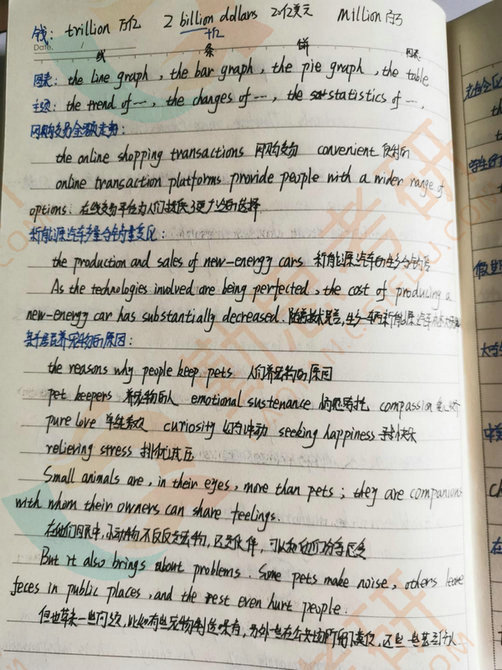 钱: trillion 万亿 2 billion dollars 20亿美元 million 百万
十亿
Date.
线 条 饼 图表
图表: the line graph, the bar graph, the pie graph, the table
主题: the trend of —, the changes of —, the statistics of —,
网购交易金额走势:
the online shopping transactions 网购交易 convenient 便利的
online transaction platforms provide people with a wider range of
options. 在线交易平台为人们提供了更广泛的选择
新能源汽车产销量变化:
the production and sales of new-energy cars 新能源汽车的生产销售
As the technologies involved are being perfected, the cost of producing a
new-energy car has substantially decreased.
养宠物的原因:
the reasons why people keep pets 人们养宠物的原因
pet keepers 养宠物的人 emotional sustenance 情感寄托 compassion
pure love curiosity seeking happiness 寻求快乐
relieving stress 排忧减压
Small animals are, in their eyes, more than pets; they are companions
with whom their owners can share feelings.
在他们眼中,小动物不仅仅是宠物,还是伙伴,可以和他们分享感受
But it also brings about problems. Some pets make noise, others leave
feces in public places, and the rest even hurt people.
但也带来一些问题,比如有些宠物制造噪音,另外一些在公共场所留下粪便,还有一些甚至引人